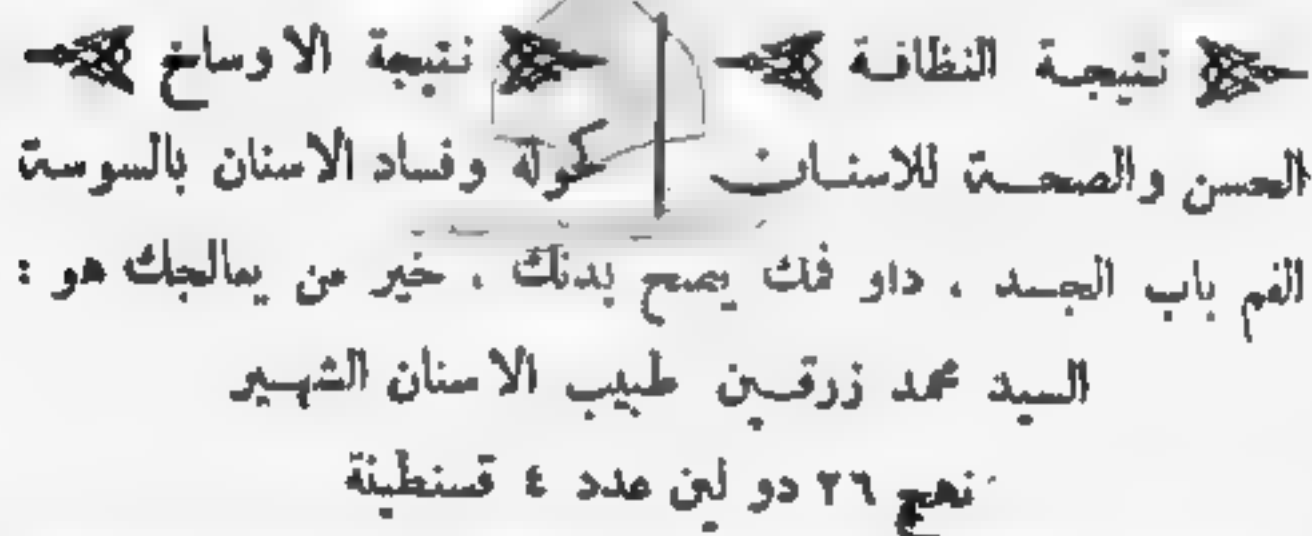 نتيجة النظافة
الحسن والصحة للاسنان
نتيجة الاوساخ
كولة وفساد الاسنان بالسوسة
الفم باب الجسد ، داو فمك يصح بدنك ، خير من يعالجك هو :
السيد محمد زرقين طبيب الاسنان الشهير
نهج ٢٦ دو لين عدد ٤ قسنطينة